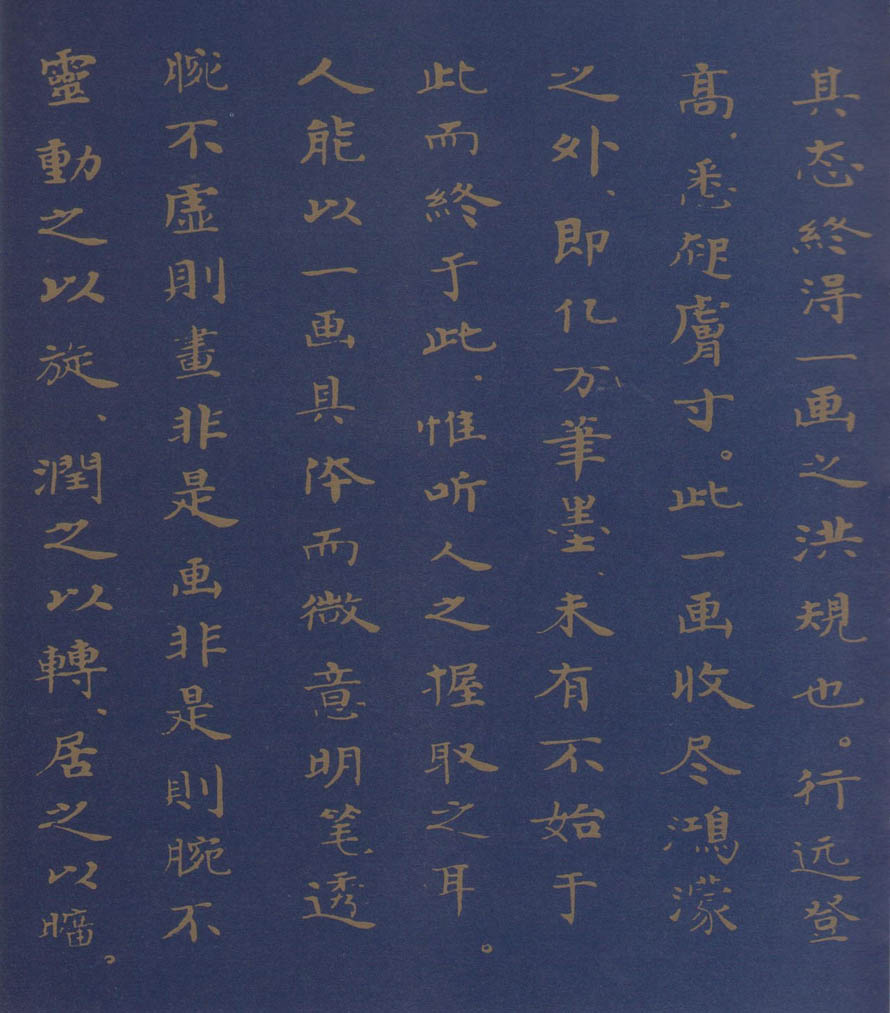 其态終得一画之洪規也。行远登
高、悉起膚寸。此一画收尽鴻濛
之外、即亿万筆墨、未有不始于
此而終于此、惟听人之握取之耳。
人能以一画具体而微意明笔透
腕不虚則畫非是画非是則腕不
靈動之以旋、潤之以轉、居之以曠。